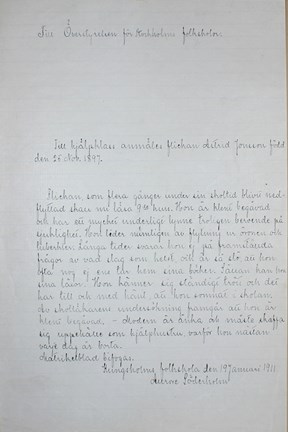 Till Överstyrelsen för Stockholms folkskolor.
Till hjälpklass anmäles flickan Astrid Jonsson född
den 25 Nov. 1897.
Flickan, som flera gånger under sin skoltid blivit ned-
flyttad skall nu läsa kurs. Hon är klent begåvad
och har ett mycket underligt lynne troligen beroende på
sjuklighet. Hon lider nämligen av flytning ur öronen och
tuberkler. Långa tider svarar hon ej på framställda
frågor av vad slag som helst, och är så slö att hon
ej ens tar fram sina böcker. Sällan han hon
sina läxor. Hon känner sig ständigt trött och det
har till och med hänt att hon somnat i skolan.
Av skolläkarens undersökning framgår att hon är
klent begåvad. - Modern är änka och måste skaffa
sig som hjälphustru, varför hon nästan
varje dag är borta.
bifogas.
Kungsholms folkskola den 19 januari 1911
Aurore Söderholm